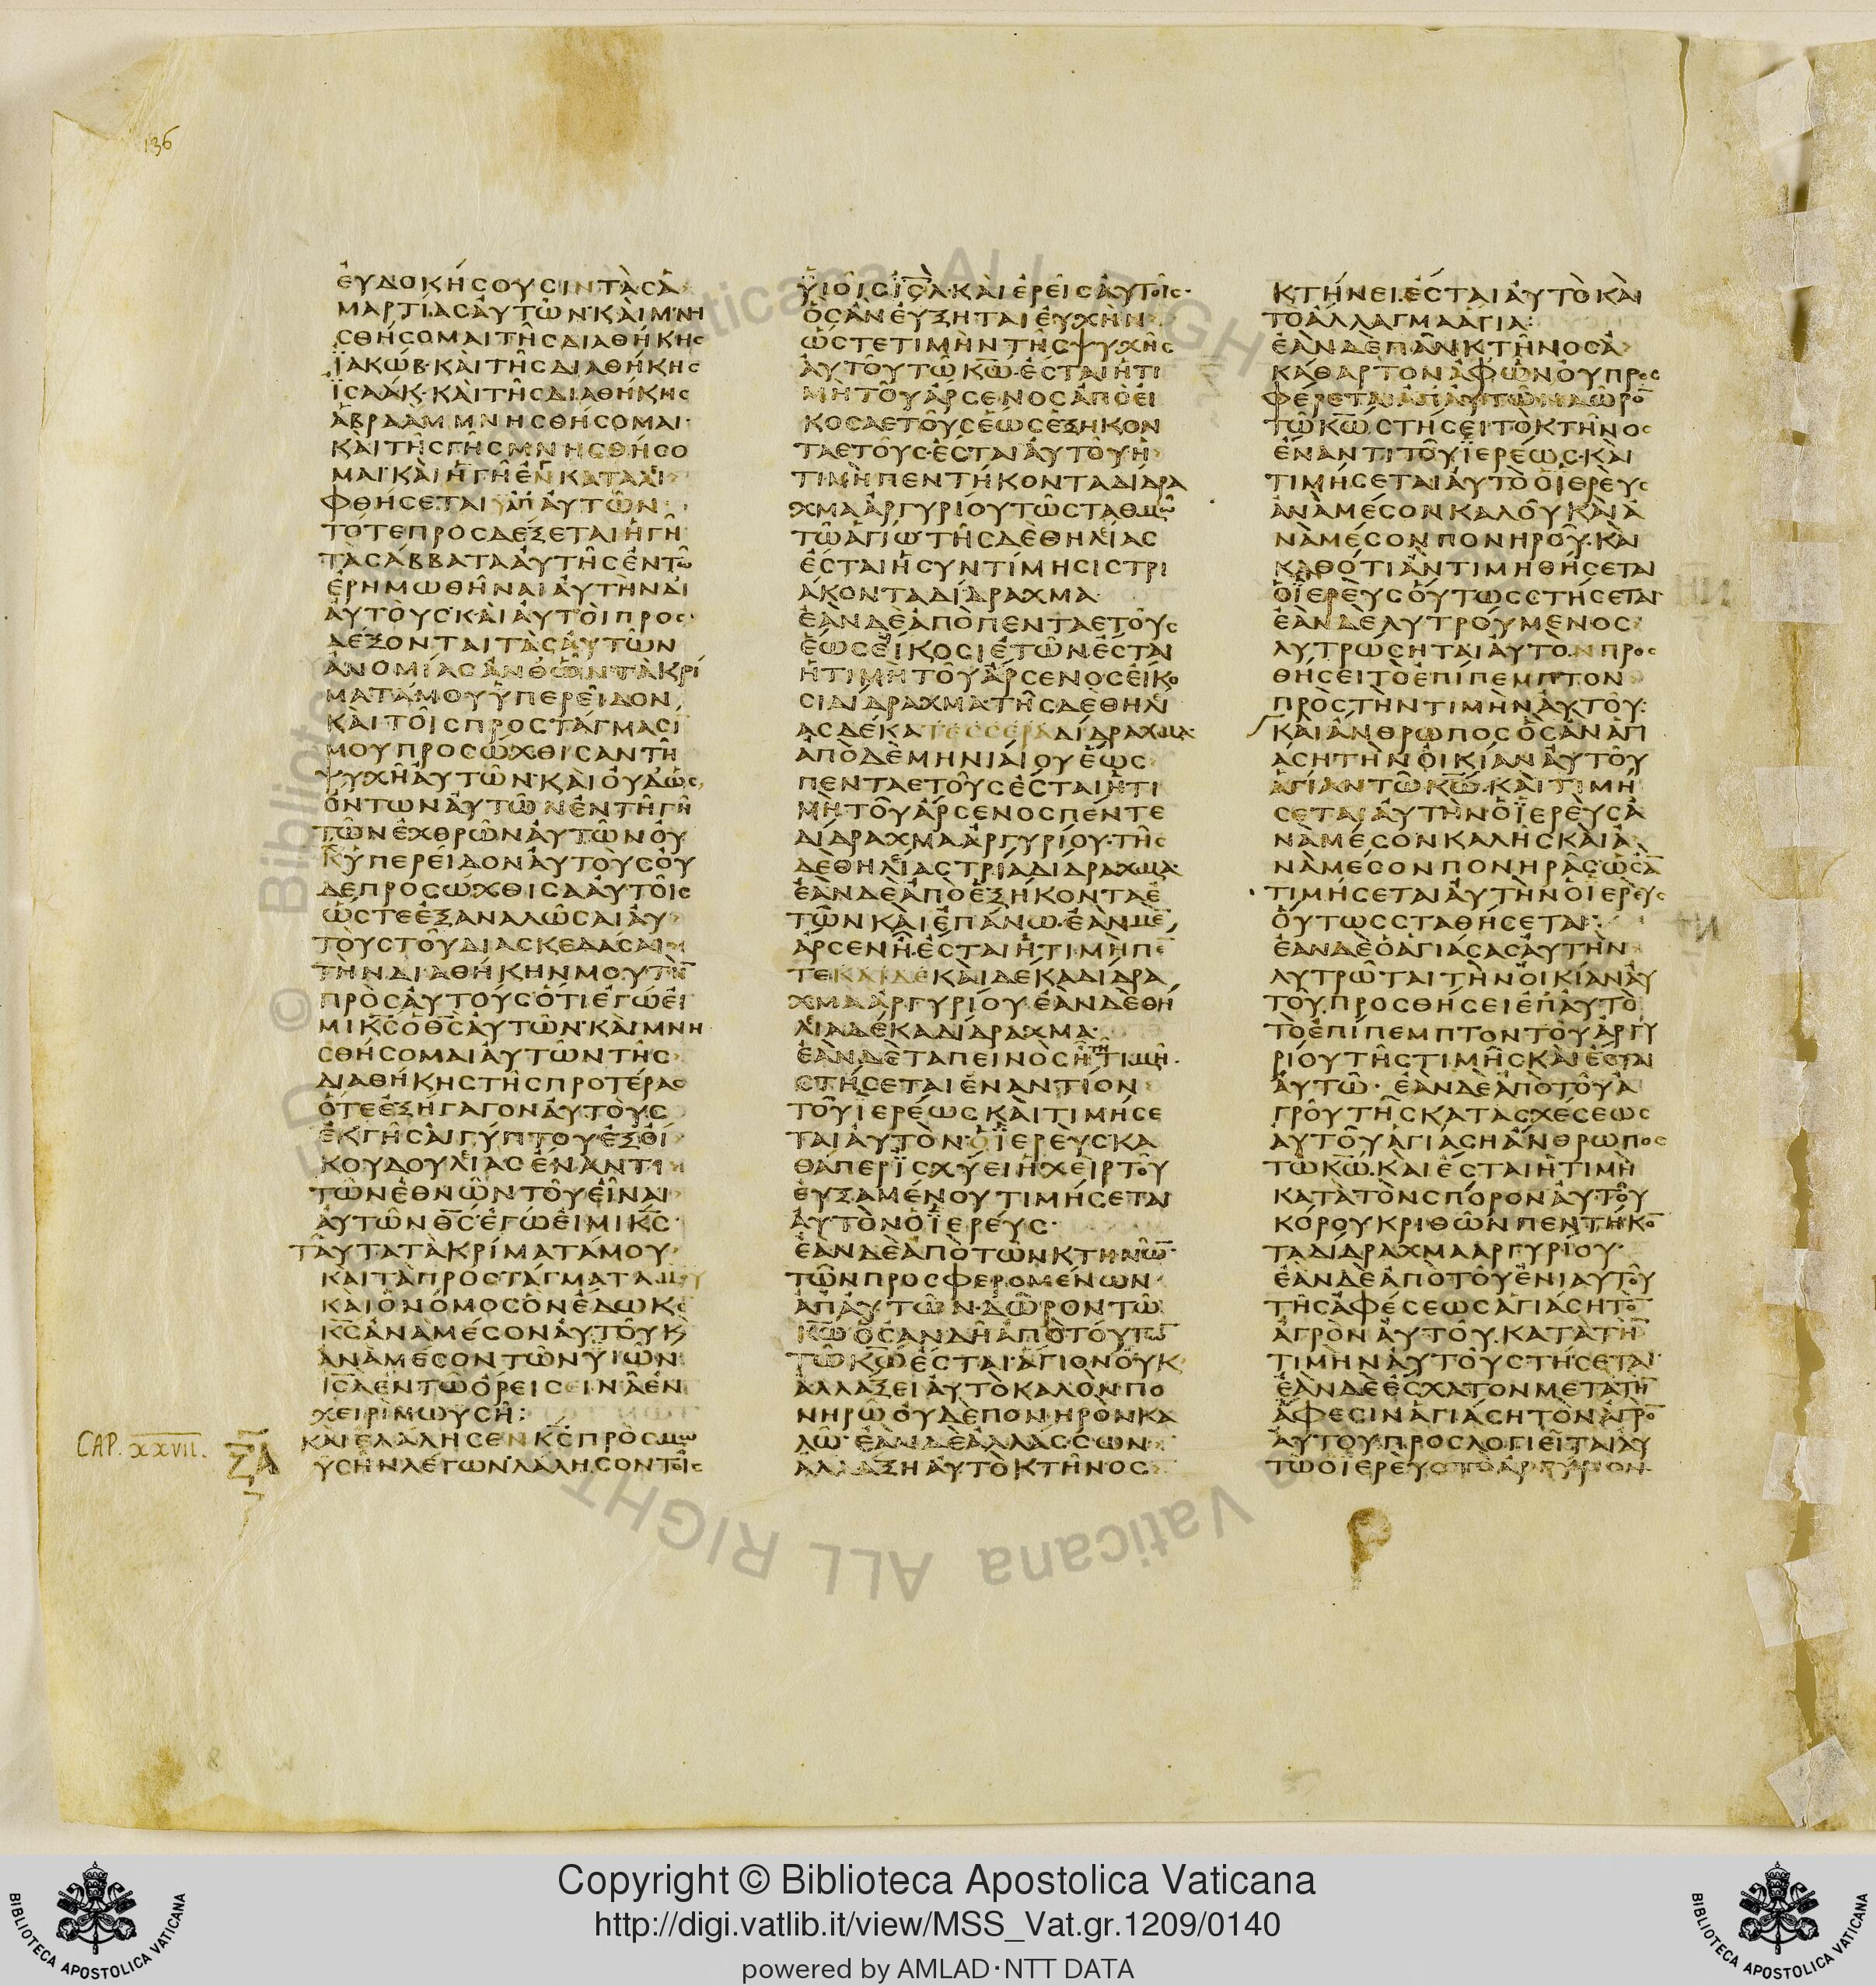 136
ΕΥΔΟΚΗΣΟΥΣΙΝΤΑΣΑ
ΜΑΡΤΙΑΣΑΥΤΩΝ·ΚΑΙΜΝΗ
ΣΘΗΣΟΜΑΙΤΗΣΔΙΑΘΗΚΗΣ
ΪΑΚΩΒ·ΚΑΙΤΗΣΔΙΑΘΗΚΗΣ
ΪΣΑΑΚ·ΚΑΙΤΗΣΔΙΑΘΗΚΗΣ
ΑΒΡΑΑΜΜΝΗΣΘΗΣΟΜΑΙ·
ΚΑΙΤΗΣΓΗΣΜΝΗΣΘΗΣΟ
ΜΑΙ·ΚΑΙΗΓΗΕΝΚΑΤΑΛΙ
ΦΘΗΣΕΤΑΙΥΠΑΥΤΩΝ
ΤΟΤΕΠΡΟΣΔΕΞΕΤΑΙΗΓΗ
ΤΑΣΑΒΒΑΤΑΑΥΤΗΣΕΝΤΩ
ΕΡΗΜΩΘΗΝΑΙΑΥΤΗΝΔΙ
ΑΥΤΟΥΣ·ΚΑΙΑΥΤΟΙΠΡΟΣ
ΔΕΞΟΝΤΑΙΤΑΣΑΥΤΩΝ
ΑΝΟΜΙΑΣΑΝΘΩΝΤΑΚΡΙ
ΜΑΤΑΜΟΥΫΠΕΡΕΙΔΟΝ
ΚΑΙΤΟΙΣΠΡΟΣΤΑΓΜΑΣΙ
ΜΟΥΠΡΟΣΩΧΘΙΣΑΝΤΗ
ΨΥΧΗΑΥΤΩΝ·ΚΑΙΟΥΔΩΣ
ΟΝΤΩΝΑΥΤΩΝΕΝΤΗΓΗ
ΤΩΝΕΧΘΡΩΝΑΥΤΩΝΟΥ
ΚΥΠΕΡΕΙΔΟΝΑΥΤΟΥΣΟΥ
ΔΕΠΡΟΣΩΧΘΙΣΑΑΥΤΟΙΣ
ΩΣΤΕΕΞΑΝΑΛΩΣΑΙΑΥ
ΤΟΥΣΤΟΥΔΙΑΣΚΕΔΑΣΑΙ
ΤΗΝΔΙΑΘΗΚΗΝΜΟΥΤΗ̅
ΠΡΟΣΑΥΤΟΥΣΟΤΙΕΓΩΕΙ
ΜΙΚ̅Σ̅ΟΘ̅Σ̅ΑΥΤΩΝ·ΚΑΙΜΝΗ
ΣΘΗΣΟΜΑΙΑΥΤΩΝΤΗΣ
ΔΙΑΘΗΚΗΣΤΗΣΠΡΟΤΕΡΑΣ
ΟΤΕΕΞΗΓΑΓΟΝΑΥΤΟΥΣ
ΕΚΓΗΣΑΙΓΥΠΤΟΥΕΞΟΙ
ΚΟΥΔΟΥΛΙΑΣΕΝΑΝΤΙ
ΤΩΝΕΘΝΩΝΤΟΥΕΙΝΑΙ
ΑΥΤΩΝΘ̅Σ̅·ΕΓΩΕΙΜΙΚ̅Σ̅·
ΤΑΥΤΑΤΑΚΡΙΜΑΤΑΜΟΥ
ΚΑΙΤΑΠΡΟΣΤΑΓΜΑΤΑΜΟΥ
ΚΑΙΟΝΟΜΟΣΟΝΕΔΩΚΕ
Κ̅Σ̅ΑΝΑΜΕΣΟΝΑΥΤΟΥΚ
ΑΝΑΜΕΣΟΝΤΩΝΥΙΩΝ
ΙΣ̅Λ̅ΕΝΤΩΟΡΕΙΣΕΙΝΑΕΝ
ΧΕΙΡΙΜΩΥΣΗ:
CAP. XXVII.
ΞΑ
ΚΑΙΕΛΑΛΗΣΕΝΚ̅Σ̅ΠΡΟΣΜΩ
ΥΣΗΝΛΕΓΩΝ·ΛΑΛΗΣΟΝΤΟΙΣ
ΥΙΟΙΣΙΣ̅Λ̅·ΚΑΙΕΡΕΙΣΑΥΤΟΙΣ·
ΟΣΑΝΕΥΞΗΤΑΙΕΥΧΗΝ
ΩΣΤΕΤΙΜΗΝΤΗΣΨΥΧΗΣ
ΑΥΤΟΥΤΩΚ̅Ω̅·ΕΣΤΑΙΗΤΙ
ΜΗΤΟΥΑΡΣΕΝΟΣΑΠΟΕΙ
ΚΟΣΑΕΤΟΥΣΕΩΣΕΞΗΚΟΝ
ΤΑΕΤΟΥΣ·ΕΣΤΑΙΑΥΤΟΥΗ
ΤΙΜΗΠΕΝΤΗΚΟΝΤΑΔΙΔΡΑ
ΧΜΑΑΡΓΥΡΙΟΥΤΩΣΤΑΘΜΩ
ΤΩΑΓΙΩ·ΤΗΣΔΕΘΗΛΙΑΣ
ΕΣΤΑΙΗΣΥΝΤΙΜΗΣΙΣΤΡΙ
ΑΚΟΝΤΑΔΙΔΡΑΧΜΑ·
ΕΑΝΔΕΑΠΟΠΕΝΤΑΕΤΟΥΣ
ΕΩΣΕΙΚΟΣΙΕΤΩΝ·ΕΣΤΑΙ
ΗΤΙΜΗΤΟΥΑΡΣΕΝΟΣΕΙΚΟ
ΣΙΔΙΔΡΑΧΜΑ·ΤΗΣΔΕΘΗΛΙ
ΑΣΔΕΚΑΤΕΣΣΕΡΑΔΙΔΡΑΧΜΑ·
ΑΠΟΔΕΜΗΝΙΑΙΟΥΕΩΣ
ΠΕΝΤΑΕΤΟΥΣΕΣΤΑΙΗΤΙ
ΜΗΤΟΥΑΡΣΕΝΟΣΠΕΝΤΕ
ΔΙΔΡΑΧΜΑΑΡΓΥΡΙΟΥ·ΤΗΣ
ΔΕΘΗΛΙΑΣΤΡΙΑΔΙΔΡΑΧΜΑ·
ΕΑΝΔΕΑΠΟΕΞΗΚΟΝΤΑΕ
ΤΩΝΚΑΙΕΠΑΝΩ·ΕΑΝΜΕ
ΑΡΣΕΝΗ·ΕΣΤΑΙΗΤΙΜΗΠΕ̅
ΤΕΚΑΙΔΕΚΑΙΔΕΚΑΔΙΔΡΑ
ΧΜΑΑΡΓΥΡΙΟΥ·ΕΑΝΔΕΘΗ
ΛΙΑΔΕΚΑΔΙΔΡΑΧΜΑ·
ΕΑΝΔΕΤΑΠΕΙΝΟΣΗΤΗΤΙΜΗ·
ΣΤΗΣΕΤΑΙΕΝΑΝΤΙΟΝ
ΤΟΥΪΕΡΕΩΣ·ΚΑΙΤΙΜΗΣΕ
ΤΑΙΑΥΤΟΝ·ΟΪΕΡΕΥΣΚΑ
ΘΑΠΕΡΪΣΧΥΕΙΗΧΕΙΡΤΟΥ
ΕΥΞΑΜΕΝΟΥΤΙΜΗΣΕΤΑΙ
ΑΥΤΟΝΟΪΕΡΕΥΣ·
ΕΑΝΔΕΑΠΟΤΩΝΚΤΗΝΩ̅
ΤΩΝΠΡΟΣΦΕΡΟΜΕΝΩΝ
ΑΠΑΥΤΩΝ·ΔΩΡΟΝΤΩ
Κ̅Ω̅ΟΣΑΝΔΗΑΠΟΤΟΥΤΩ̅
ΤΩΚ̅Ω̅ΕΣΤΑΙ·ΑΓΙΟΝΟΥΚ
ΑΛΛΑΞΕΙΑΥΤΟΚΑΛΟΝΠΟ
ΝΗΡΩΟΥΔΕΠΟΝΗΡΟΝΚΑ
ΛΩ·ΕΑΝΔΕΑΛΛΑΣΣΩΝ
ΑΛΛΑΞΗΑΥΤΟΚΤΗΝΟΣ
ΚΤΗΝΕΙ·ΕΣΤΑΙΑΥΤΟΚΑΙ
ΤΟΑΛΛΑΓΜΑΑΓΙΑ·
ΕΑΝΔΕΠΑΝΚΤΗΝΟΣΑ
ΚΑΘΑΡΤΟΝΑΦΩΝΟΥΠΡΟΣ
ΦΕΡΕΤΑΙΑΠΑΥΤΩΝΔΩΡΟ̅
ΤΩΚ̅Ω̅ΣΤΗΣΕΙΤΟΚΤΗΝΟΣ
ΕΝΑΝΤΙΤΟΥΪΕΡΕΩΣ·ΚΑΙ
ΤΙΜΗΣΕΤΑΙΑΥΤΟΟΪΕΡΕΥΣ
ΑΝΑΜΕΣΟΝΚΑΛΟΥΚΑΙΑ
ΝΑΜΕΣΟΝΠΟΝΗΡΟΥ·ΚΑΙ
ΚΑΘΟΤΙΑΝΤΙΜΗΘΗΣΕΤΑΙ
ΟΪΕΡΕΥΣΟΥΤΩΣΣΤΗΣΕΤΑΙ·
ΕΑΝΔΕΛΥΤΡΟΥΜΕΝΟΣ
ΛΥΤΡΩΣΗΤΑΙΑΥΤΟΝΠΡΟΣ
ΘΗΣΕΙΤΟΕΠΙΠΕΜΠΤΟΝ
ΠΡΟΣΤΗΝΤΙΜΗΝΑΥΤΟΥ·
ΚΑΙΑΝΘΡΩΠΟΣΟΣΑΝΑΓΙ
ΑΣΗΤΗΝΟΙΚΙΑΝΑΥΤΟΥ
ΑΓΙΑΝΤΩΚ̅Ω̅·ΚΑΙΤΙΜΗ
ΣΕΤΑΙΑΥΤΗΝΟΪΕΡΕΥΣΑ
ΝΑΜΕΣΟΝΚΑΛΗΣΚΑΙΑ
ΝΑΜΕΣΟΝΠΟΝΗΡΑΣ·ΩΣΑ̅
ΤΙΜΗΣΕΤΑΙΑΥΤΗΝΟΪΕΡΕΥΣ
ΟΥΤΩΣΣΤΑΘΗΣΕΤΑΙ·
ΕΑΝΔΕΟΑΓΙΑΣΑΣΑΥΤΗΝ
ΛΥΤΡΩΤΑΙΤΗΝΟΙΚΙΑΝΑΥ
ΤΟΥ·ΠΡΟΣΘΗΣΕΙΕΠΑΥΤΟ
ΤΟΕΠΙΠΕΜΠΤΟΝΤΟΥΑΡΓΥ
ΡΙΟΥΤΗΣΤΙΜΗΣΚΑΙΕΣΤΑΙ
ΑΥΤΩ· ΕΑΝΔΕΑΠΟΤΟΥΑ
ΓΡΟΥΤΗΣΚΑΤΑΣΧΕΣΕΩΣ
ΑΥΤΟΥΑΓΙΑΣΗΑΝΘΡΩΠΟΣ
ΤΩΚ̅Ω̅·ΚΑΙΕΣΤΑΙΗΤΙΜΗ
ΚΑΤΑΤΟΝΣΠΟΡΟΝΑΥΤΟΥ
ΚΟΡΟΥΚΡΙΘΩΝΠΕΝΤΗΚΟ̅
ΤΑΔΙΔΡΑΧΜΑΑΡΓΥΡΙΟΥ·
ΕΑΝΔΕΑΠΟΤΟΥΕΝΙΑΥΤΟΥ
ΤΗΣΑΦΕΣΕΩΣΑΓΙΑΣΗΤΟ̅
ΑΓΡΟΝΑΥΤΟΥ·ΚΑΤΑΤΗ̅
ΤΙΜΗΝΑΥΤΟΥΣΤΗΣΕΤΑΙ·
ΕΑΝΔΕΕΣΧΑΤΟΝΜΕΤΑΤΗ̅
ΑΦΕΣΙΝΑΓΙΑΣΗΤΟΝΑΓΡΟ̅
ΑΥΤΟΥ·ΠΡΟΣΛΟΓΙΕΙΤΑΙΑΥ
ΤΩΟΪΕΡΕΥΣΤΟΑΡΓΥΡΙΟΝ
© Biblioteca Apostolica Vaticana ALL RIGHTS RESERVED
Copyright © Biblioteca Apostolica Vaticana
http://digi.vatlib.it/view/MSS_Vat.gr.1209/0140
powered by AMLAD·NTT DATA
BIBLIOTECA APOSTOLICA VATICANA
BIBLIOTECA APOSTOLICA VATICANA